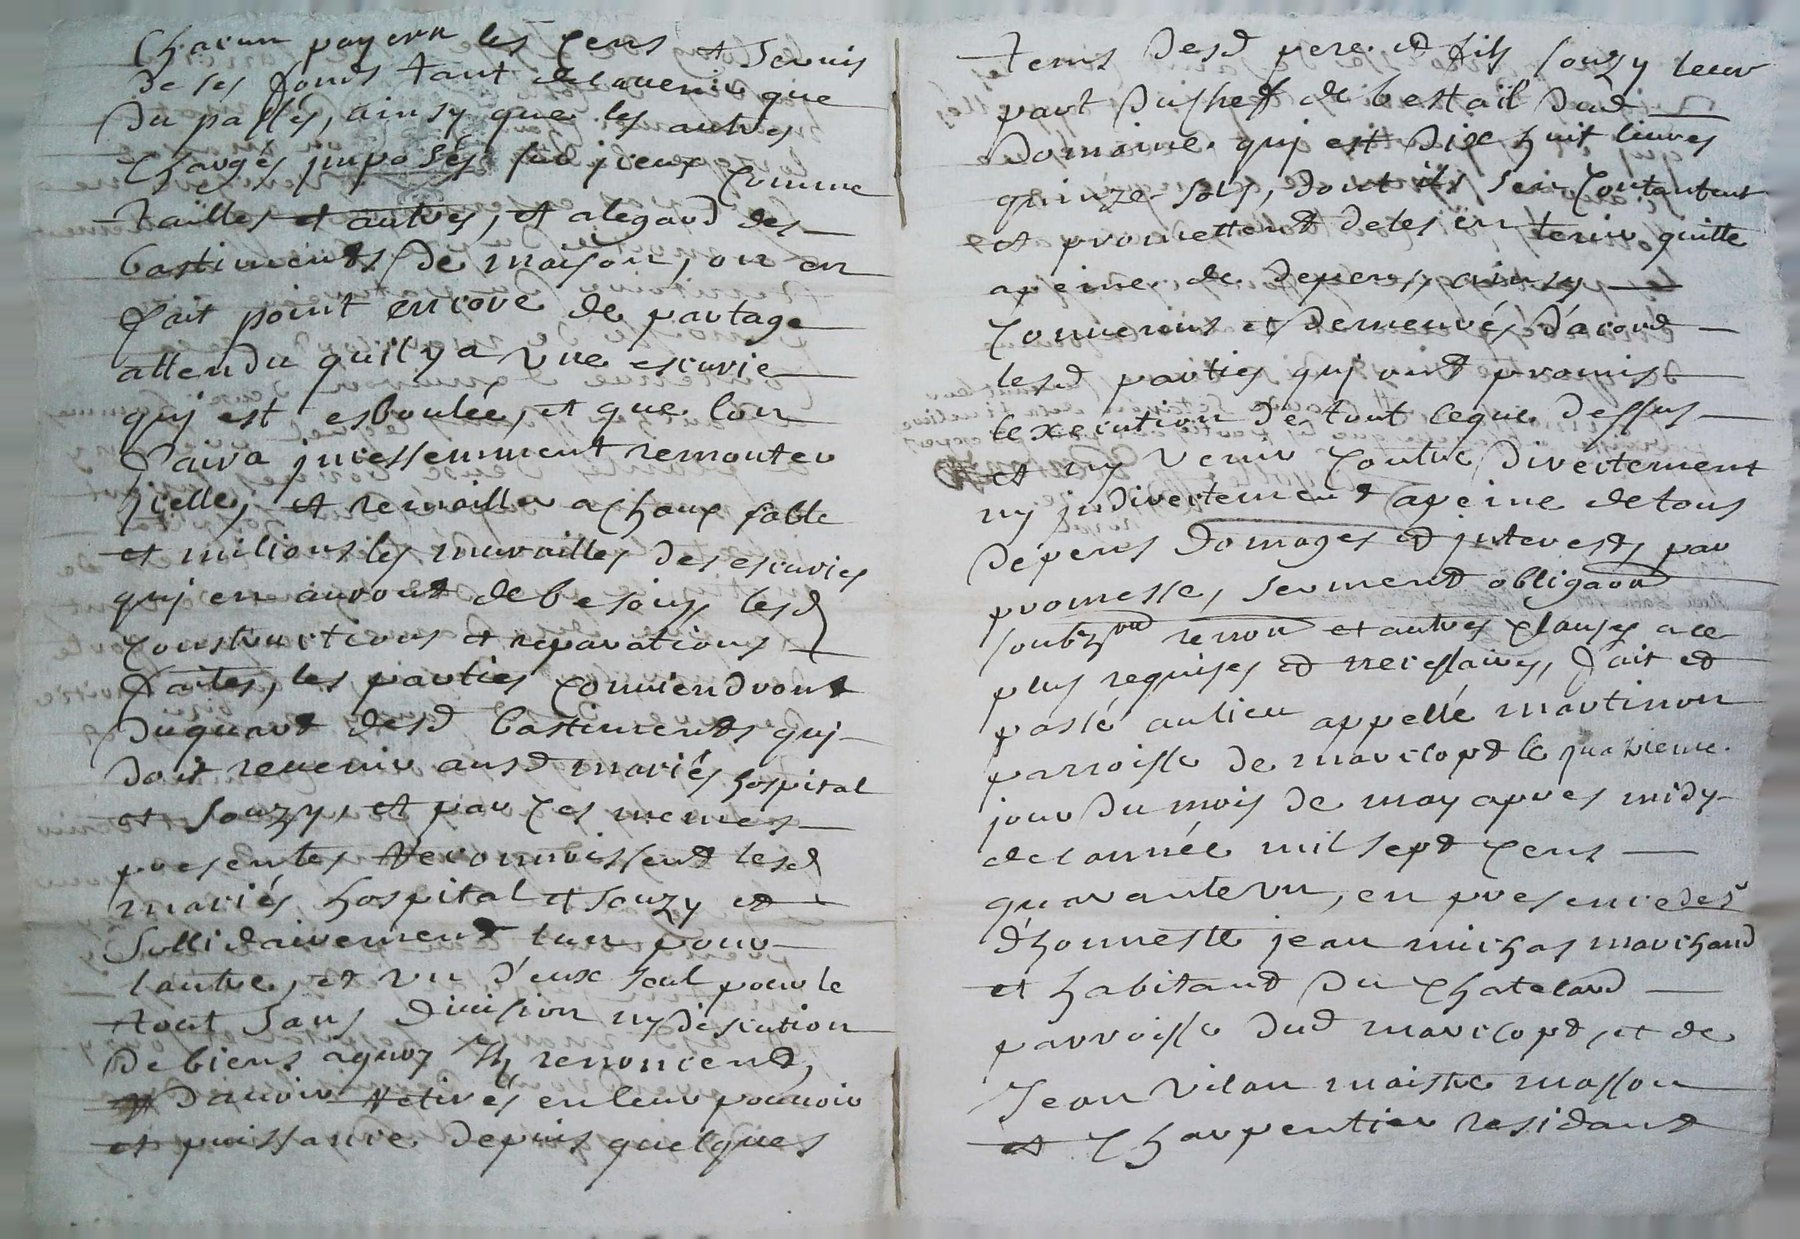 Chacun payera les cens et servis
de ses fonds tant de lavenir que
du passés, ainsy que les autres
charges imposés sur jceux comme
tailles et autres, et alegard des
bastiments de maison, on en
fait point encore de partage
attendu quil y a une escurie
qui est esboulée, et que lon
faira jncessemment remonter
jcelle, et remailler a chaux sable
et milions les murailles des escuries
qui en auront de besoin, lesd
constructions et reparations
faites, les parties conviendront
du quart desd bastiments qui
doit revenir ausd mariés hospital
et souzy, et par ces memes
presentes reconnoissent lesd
mariés hospital et souzy et
sollidairement lun pour
lautre, et un d'eux seul pour le
tout sans division ny discution
de biens àquoy ils renoncent,
d'auoir retirés en leur pouuoir
et puissance depuis quelques
tems desd pere et fils souzy leur
part du chef de bestail dud
domaine qui est dix huit liures
quinze sols, dont ils sen contantent
et promettent de les en tenir quitte
apeine de depens, ainsy
conuenus et demeurés d'acord
lesd parties qui ont promis
lexecution de tout ceque dessus
et ny venir contre directement
ny jndirectement apeine de tous
depens domages et jnterests par
promesse, serment obligaon
soubzon renon et autres clauses ace
plus requises et necessaires, fait et
passé aulieu appellé martinon
parroisse de marclopt le
jour du mois de may apres midy
de lannée mil sept cens
quarante un, en presence de sr
d'honneste jean michas marchand
et habitant du chatelard
parroisse dud marclopt, et de
Jean vilan maistre masson
et charpentier residant